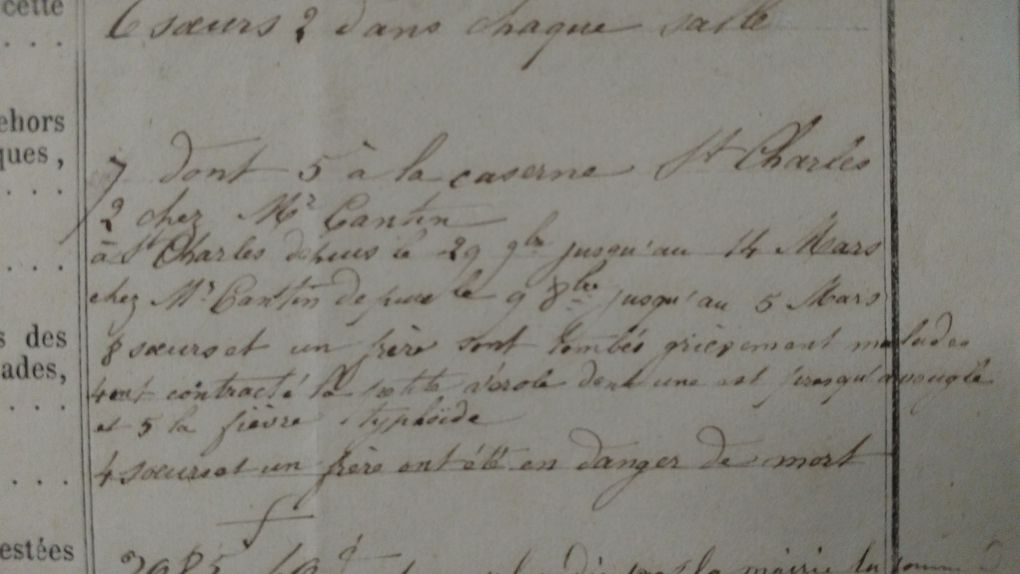 cette
. . .
6 sœurs 2 dans chaque salle
ehors
ques,
. . .
7 dont 5 à la caserne St Charles
2 chez Mr Cantin
à St Charles depuis le 29 9bre jusqu'au 14 Mars
. . . .
chez Mr Cantin depuis le 9 8bre jusqu'au 5 Mars
s des
8 sœurs et un frère sont tombés grièvement malades
ades,
4 ont contracté la petite vérole dont une est presqu'aveugle
. . .
et 5 la fièvre typhoïde
4 sœurs et un frère ont été en danger de mort
. . .
estées
la mairie la somme